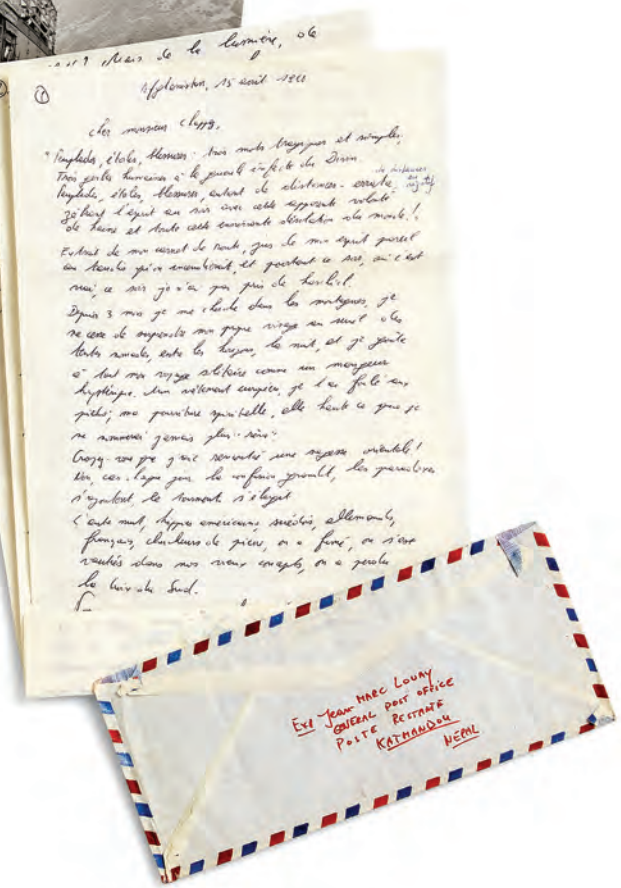 mais de la lumière, de
1
Afghanistan, 15 août 19
cher monsieur Chappaz,
Peuplades, étoiles, blessures: trois mots tragiques et simples.
Trois gestes humains à la gueule infecte du Divin.
Peuplades, étoiles, blessures, autant de distances
de distances
en négatif
l'esprit au soir avec cette apparente volonté
de haine et toute cette enivrante désolation du monde!
Extrait de mon carnet de route, jus de mon esprit pareil
et pourtant ce soir, oui c'est
vrai, ce soir je n'ai pas pris de haschich.
Depuis 3 mois je me cherche dans les montagnes, je
ne cesse de suspendre mon propre visage au seuil des
tentes nomades, entre les la nuit, et je goûte
à tout mon voyage solitaire comme un mangeur
hystérique. Mon vêtement européen, je l'ai foulé aux
pieds; ma pourriture spirituelle, elle hante ce que je
ne nommerai jamais plus "
Croyez-vous que j'aie rencontré une sagesse orientale!
Non, chaque jour la confusion grandit, les paradoxes
s'ajoutent, le tourment s'élargit
L'autre nuit, hippies américains, suédois, allemands,
français, chercheurs de pierres, on a fumé, on s'est
vautrés dans nos vieux concepts, on a perdu
la Croix du Sud.
Exp Jean MARC LOVAY
GENERAL POST OFFICE
POSTE RESTANTE
KATMANDOU
NEPAL